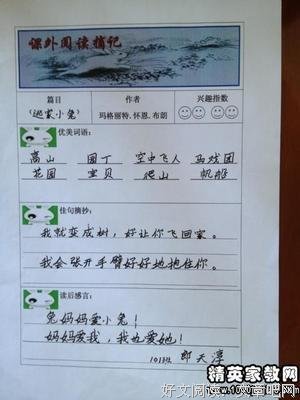 课外阅读摘记
篇目 作者 兴趣指数
(逃家小兔) 玛格丽特.怀恩.布朗
优美词语:
高山 园丁 空中飞人 马戏团
花园 宝贝 爬山 帆船
佳句摘抄:
我就变成树,好让你飞回家。
我会张开手臂好好地抱住你。
读后感言:
兔妈妈爱小兔!
妈妈爱我,我也爱她!
郎天淳
精英家教网